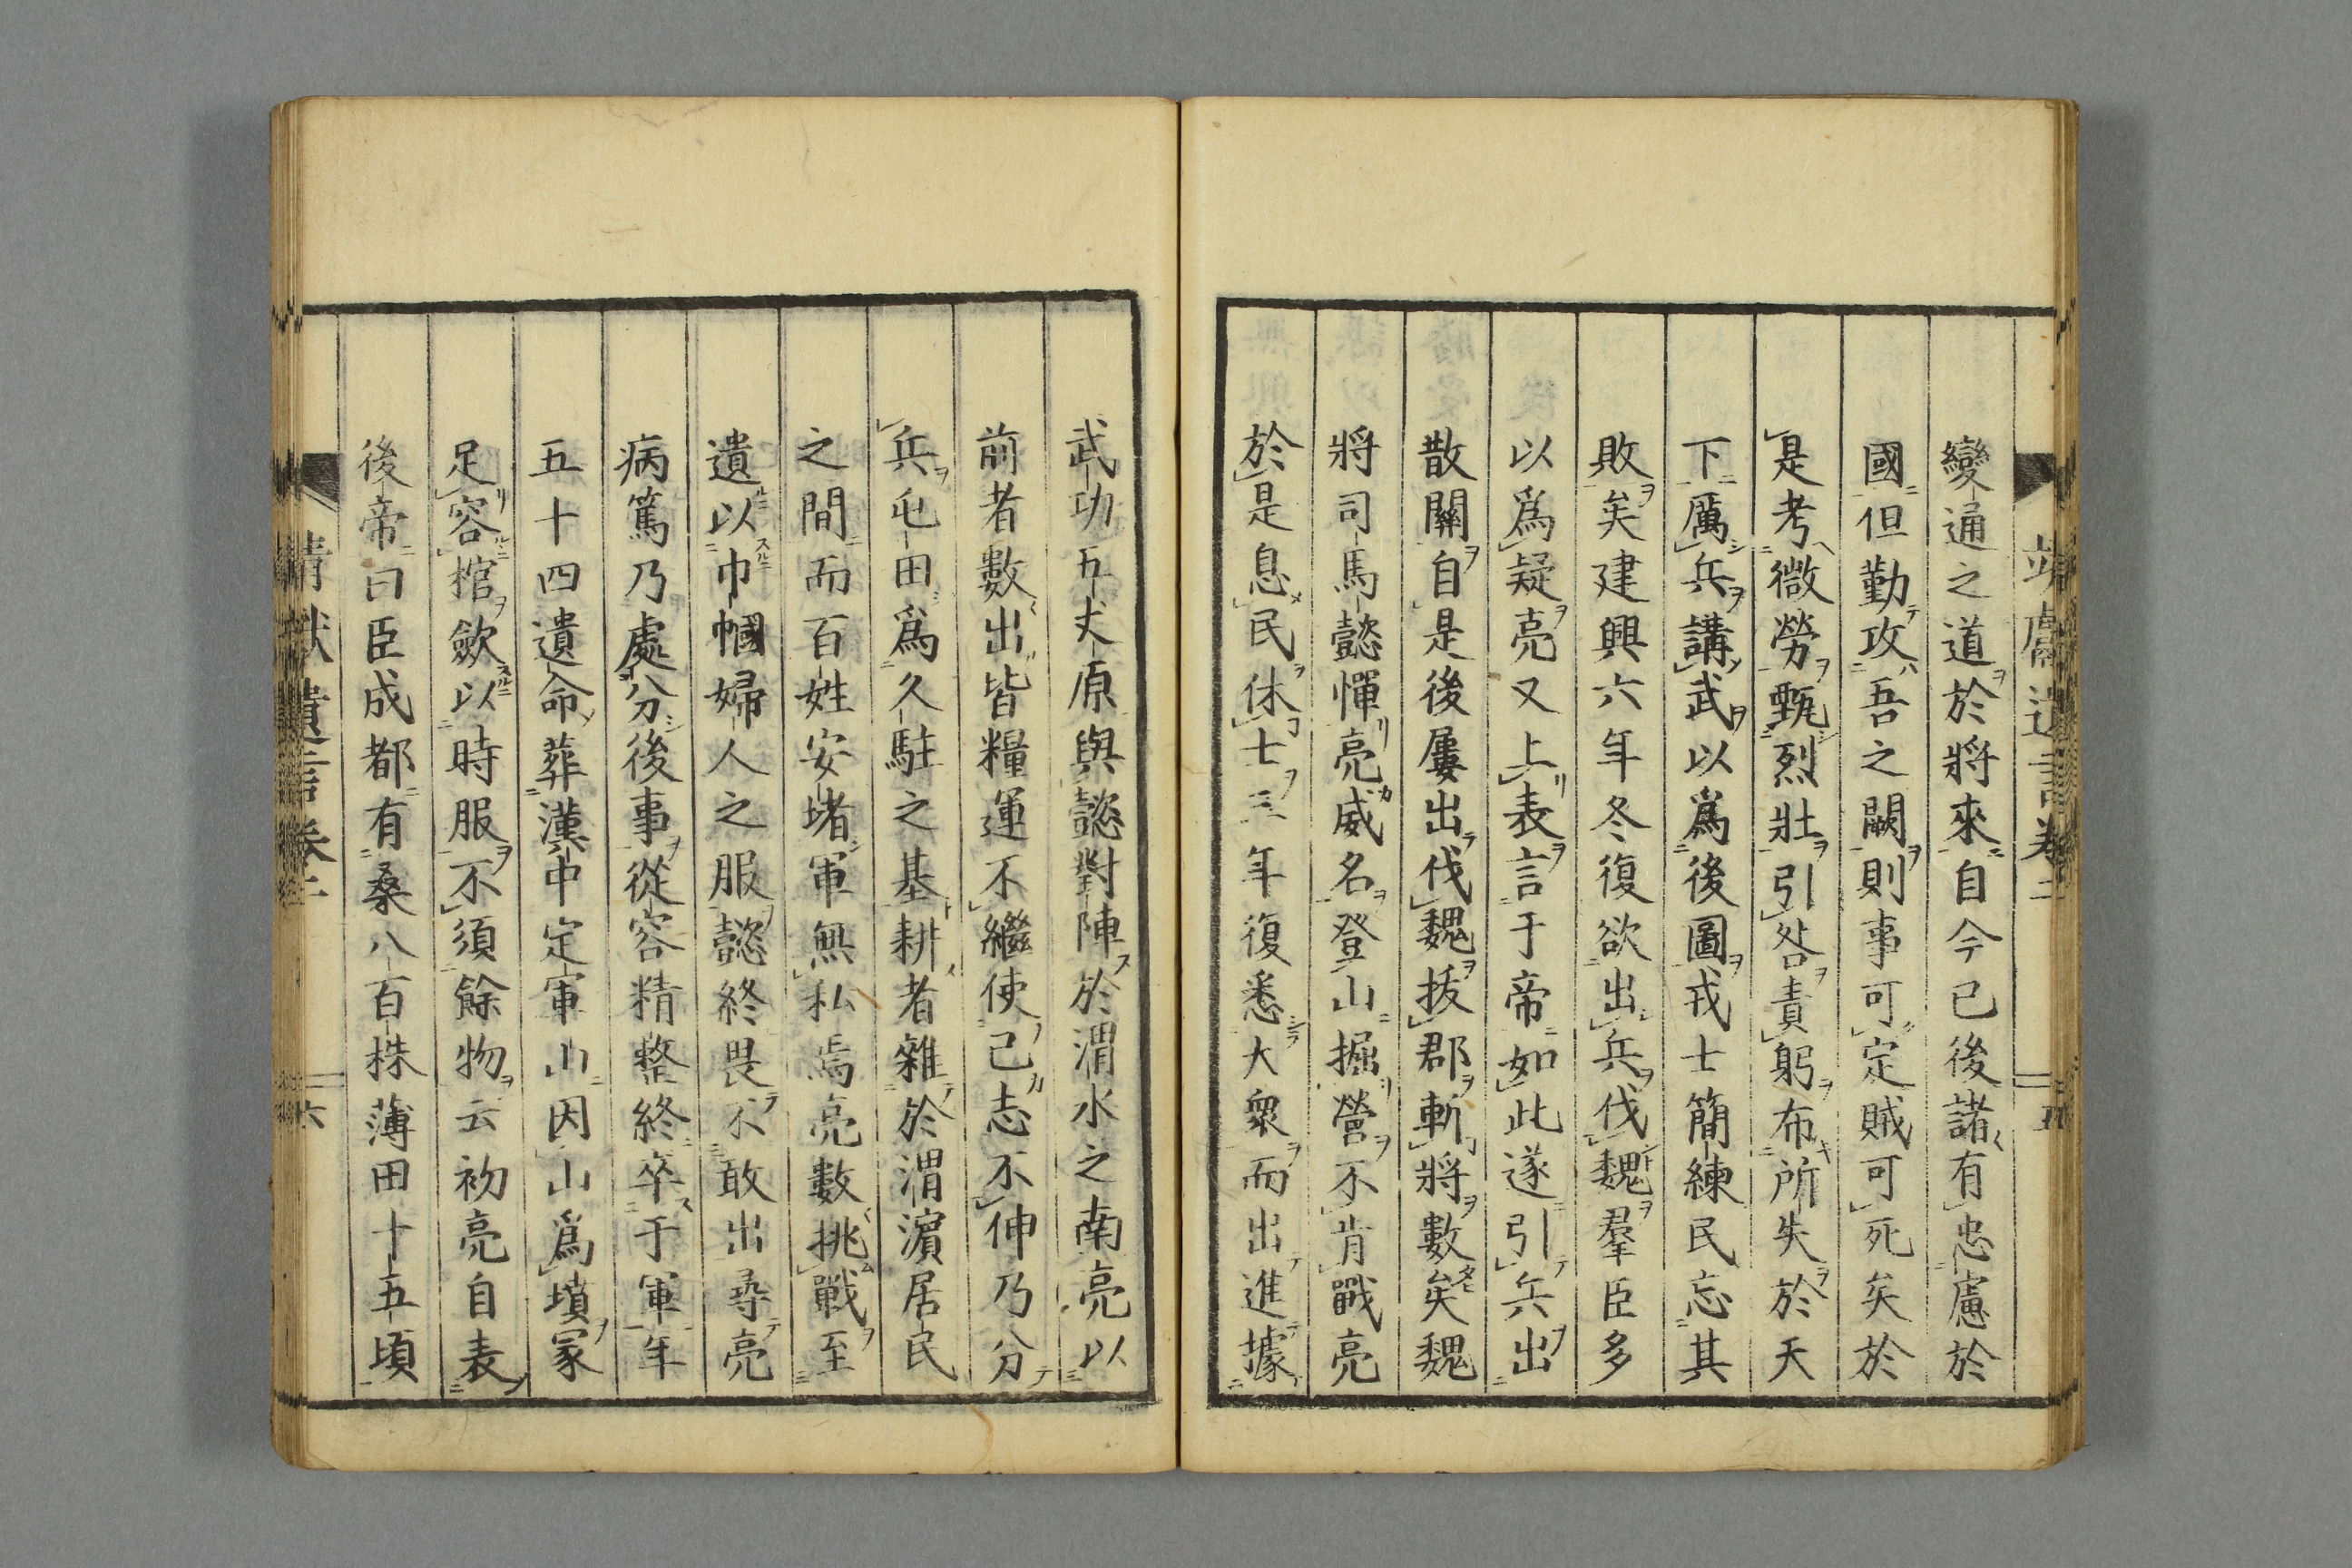 變通之道於將來自今已後諸有忠慮於
國但勤攻吾之闕則事可定賊可死矣於
是考微勞甄烈壯引咎責躬布所失於天
下厲兵講武以爲後圖戎士簡練民忘其
敗矣建興六年冬復欲出兵伐魏羣臣多
以爲疑亮又上表言于帝如此遂引兵出
散關自是後屢出伐魏拔郡斬將數矣魏
將司馬懿憚亮威名登山掘營不肯戰亮
於是息民休士三年復悉大衆而出進據
武功五丈原與懿對陣於渭水之南亮以
前者數出皆糧運不繼使己志不伸乃分
兵屯田爲久駐之基耕者雜於渭濵居民
之間而百姓安堵軍無私焉亮數挑戰至
遺以巾幗婦人之服懿終畏不敢出尋亮
病篤乃處分後事從容精整終卒于軍年
五十四遺命葬漢中定軍山因山爲墳冢
足容棺歛以時服不須餘物云初亮自表
後帝曰臣成都有桑八百株薄田十五頃
靖獻遺言卷二
六